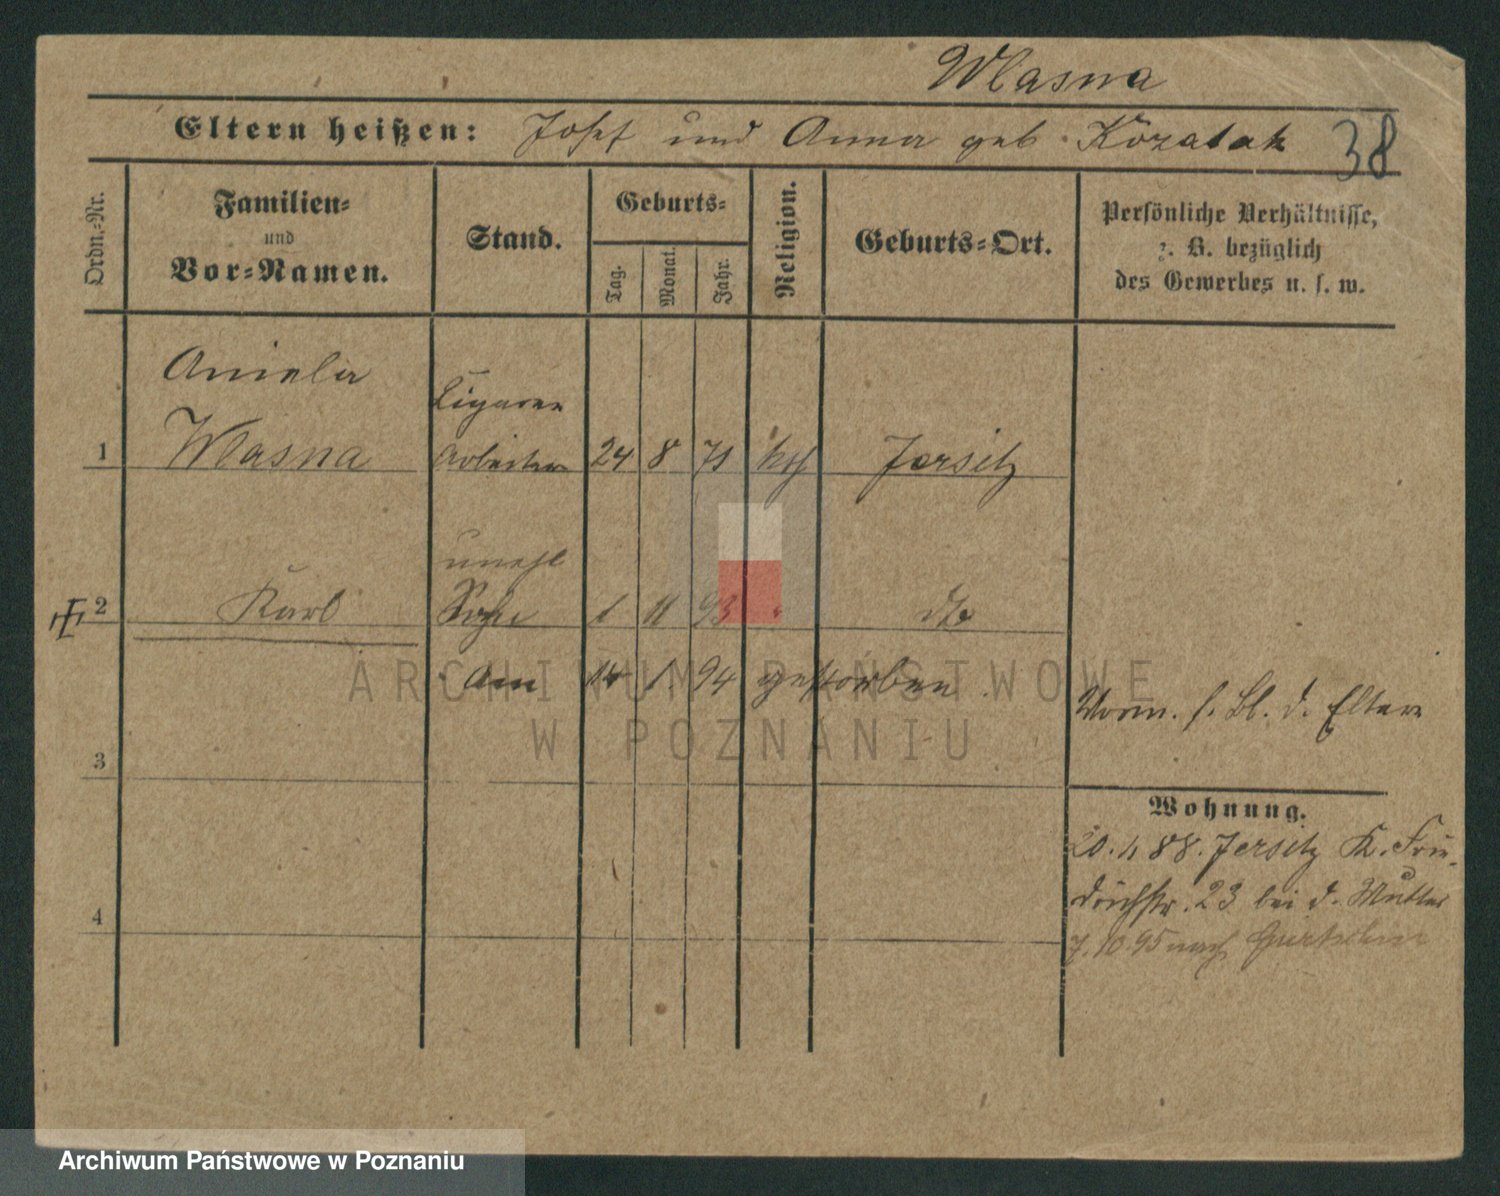 Wlasna
Eltern heißen: Josef und Anna geb. Kozalak
38
Ordn.-Nr.
Familien-
und
Vor-Namen.
Stand.
Geburts-
Tag.
Monat.
Jahr.
Religion.
Geburts-Ort.
Persönliche Verhältnisse,
z. B. bezüglich
des Gewerbes u. s. w.
Aniela
Cigarren
1 Wlasna Arbeiterin 24 8 71 kth Jersitz
unehl
2 Karl Sohn 1 11 93 " dto
Am 14 1. 94 gestorben.
Vorm. s. Bl. d. Eltern
3
Wohnung.
20. 4 88. Jersitz K. Frie-
drichstr. 23 bei d. Mutter
4
7.10.95 nach
ARCHIWUM PAŃSTWOWE
W POZNANIU
Archiwum Państwowe w Poznaniu